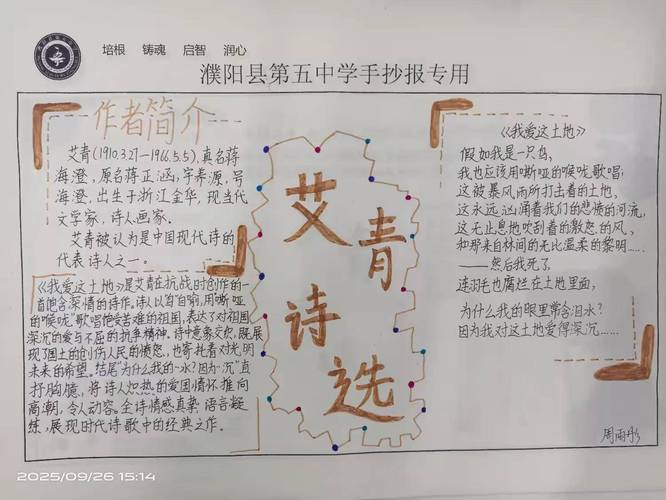 培根 铸魂 启智 润心
濮阳县第五中学手抄报专用
作者简介
艾青(1910.3.27—1966.5.5),真名蒋
海澄,原名蒋正涵,字养源,号
海澄,出生于浙江金华,现当代
文学家、诗人、画家。
艾青被认为是中国现代诗的
代表诗人之一。
《我爱这土地》是艾青在抗战时创作的一
首饱含深情的诗作。诗人以“鸟”自喻,用“嘶哑
的喉咙”歌唱饱受苦难的祖国,表达了对祖国
深沉的爱与不屈的抗争精神。诗中意象交织,既展
现了国土的创伤、人民的愤怒,也寄托着对光明
未来的希望。结尾“为什么我的…水?因为…沉”直
抒胸臆,将诗人炽热的爱国情怀推向
高潮,令人动容。全诗情感真挚,语言凝
练,展现时代诗歌中的经典之作。
艾青
诗选
《我爱这土地》
假如我是一只鸟,
我也应该用嘶哑的喉咙歌唱:
这被暴风雨所打击着的土地,
这永远汹涌着我们的悲愤的河流,
这无止息地吹刮着的激怒的风,
和那来自林间的无比温柔的黎明……
——然后我死了,
连羽毛也腐烂在土地里面,
为什么我的眼里常含泪水?
因为我对这土地爱得深沉……
周雨彤
2025/09/26 15:14